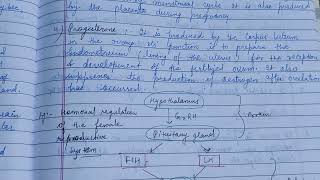 menstrual cycle. It is also produced
by the placenta during pregnancy
Progesterone: It is produced by the corpus luteum
in the ovary. Its function is to prepare the
endometrium (lining of the uterus) for the reception
& development of the fertilized ovum. It also
suppresses the production of estrogen after ovulation
has occurred.
hormonal regulation
of the female
reproductive
system
Hypothalamus
GnRH
Pituitary gland
FSH
LH